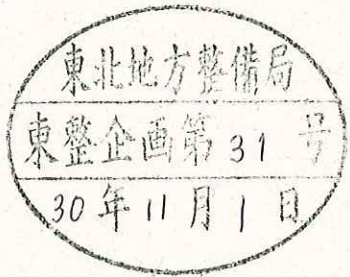 東北地方整備局
東整企画第31号
30年11月1日